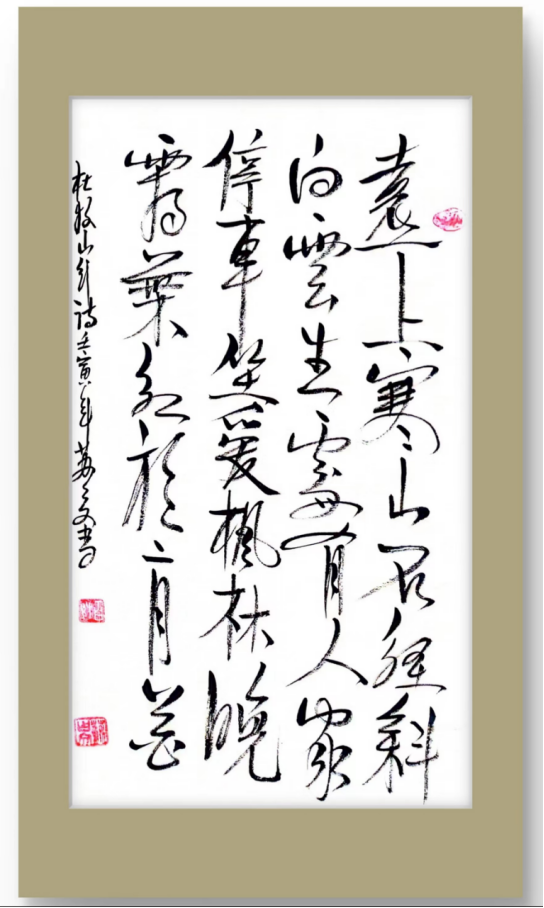 遠上寒山石徑斜
白雲生處有人家
停車坐愛楓林晚
霜葉紅於二月花
杜牧山行詩壬寅年